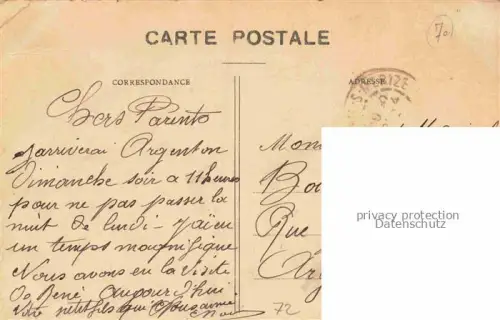 70
CARTE POSTALE
CORRESPONDANCE
ADRESSE
Chers Parents
J'arriverai Argenton
Dimanche soir à 11 heures
pour ne pas passer la
nuit de lundi - J'ai eu
un temps magnifique
Nous avons eu la visite
De René Aujourd'hui
Votre petit fils que vous aime
Mons
Bo
Rue
Arg
privacy protection
Datenschutz
72